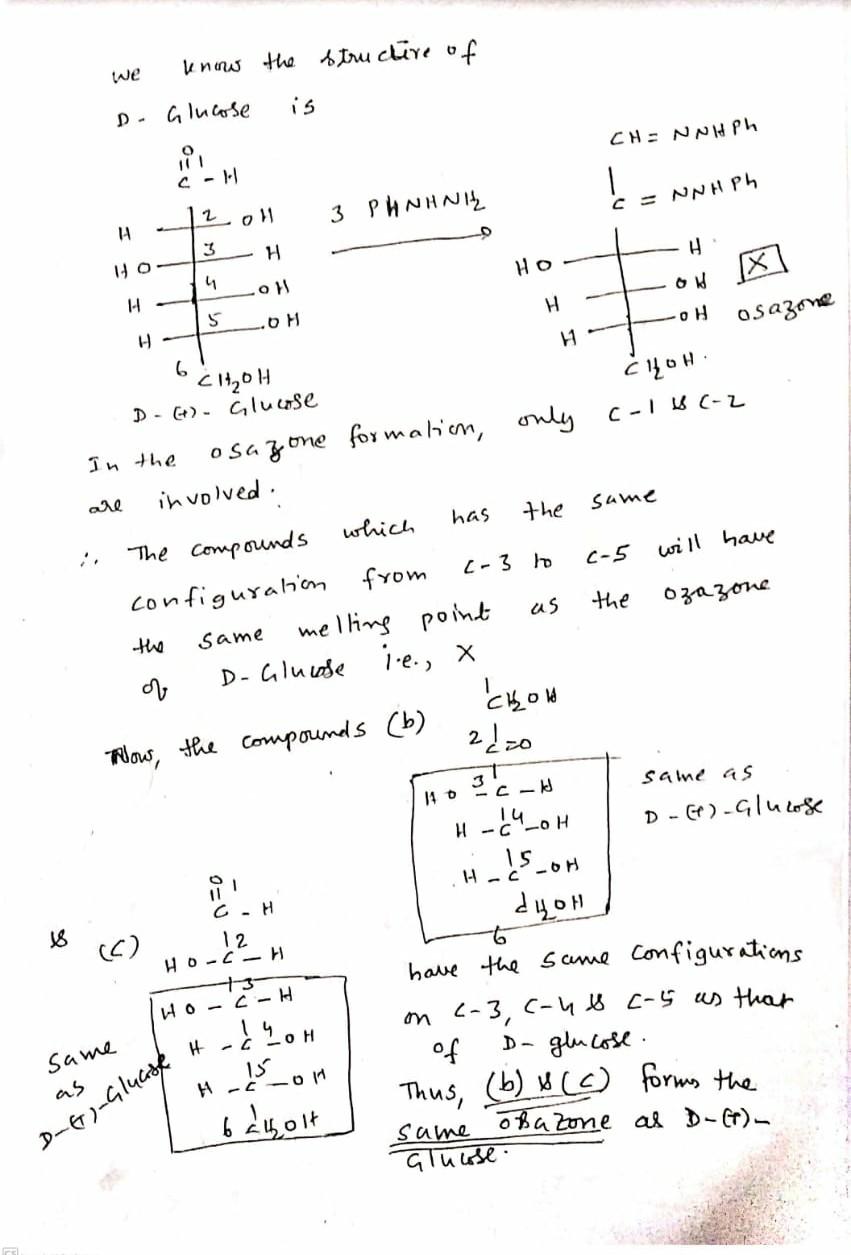 we know the structure of
D - Glucose is
O
|| 1
C - H
H 2 OH
HO 3 H
H 4 OH
H 5 OH
6 CH2OH
D - (+) - Glucose
3 PhNHNH2
CH = NNHPh
C = NNHPh
HO H
H OH
H OH
CH2OH.
X
osazone
In the osazone formation, only C-1 & C-2
are involved.
∴ The compounds which has the same
configuration from C-3 to C-5 will have
the same melting point as the ozazone
of D-Glucose i.e., X
Now, the compounds (b)
1 CH2OH
2 C=O
HO 3 C - H
H - C 4 - OH
H - C 5 - OH
CH2OH
6
same as
D - (+) - Glucose
& (C)
O
|| 1
C - H
HO - C 2 - H
HO - C 3 - H
H - C 4 - OH
H - C 5 - OH
6 CH2OH
same
as
D-(+)-Glucose
have the same configurations
on C-3, C-4 & C-5 as that
of D- glucose.
Thus, (b) & (c) forms the
same osazone as D-(+)-
Glucose.
CS